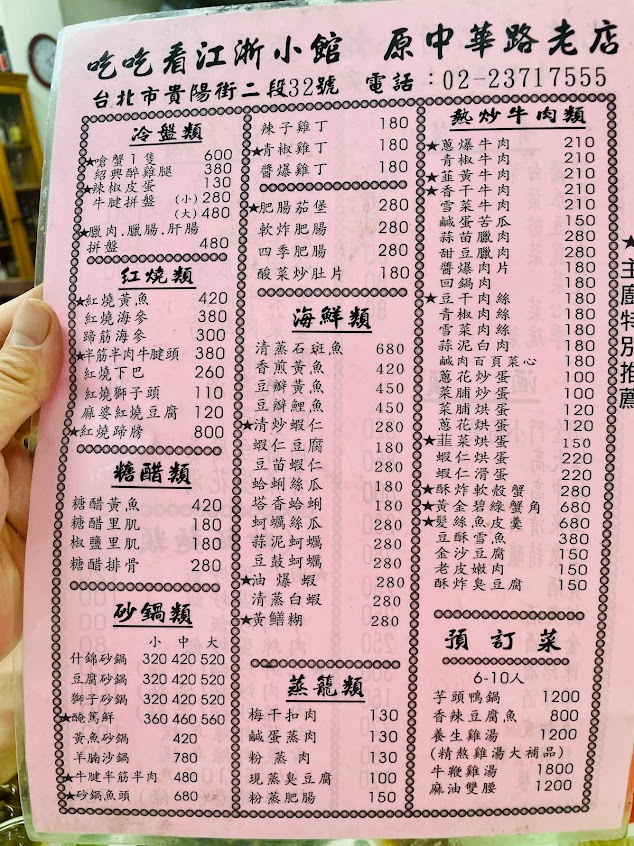 吃吃看江浙小館 原中華路老店
台北市貴陽街二段32號 電話:02-23717555
冷盤類
★嗆蟹1隻 600
紹興醉雞腿 380
★辣椒皮蛋 130
牛腱拼盤 (小)280
(大)480
★臘肉.臘腸.肝腸
拼盤 480
紅燒類
★紅燒黃魚 420
紅燒海參 380
蹄筋海參 300
★半筋半肉牛腱頭 380
紅燒下巴 260
紅燒獅子頭 110
麻婆紅燒豆腐 120
★紅燒蹄膀 800
糖醋類
糖醋黃魚 420
糖醋里肌 180
椒鹽里肌 180
糖醋排骨 280
砂鍋類
小 中 大
什錦砂鍋 320 420 520
豆腐砂鍋 320 420 520
獅子砂鍋 320 420 520
★醃篤鮮 360 460 560
黃魚砂鍋 420
羊腩沙鍋 780
★牛腱半筋半肉 480
★砂鍋魚頭 680
辣子雞丁 180
★青椒雞丁 180
醬爆雞丁 180
★肥腸茄堡 280
軟炸肥腸 280
四季肥腸 280
酸菜炒肚片 180
海鮮類
清蒸石斑魚 680
香煎黃魚 420
豆瓣黃魚 450
豆瓣鯉魚 450
★清炒蝦仁 280
蝦仁豆腐 180
豆苗蝦仁 280
蛤蜊絲瓜 180
塔香蛤蜊 180
蚵蠣絲瓜 280
蒜泥蚵蠣 280
豆鼓蚵蠣 280
★油爆蝦 280
清蒸白蝦 280
★黃鱔糊 280
蒸籠類
梅干扣肉 130
鹹蛋蒸肉 130
粉蒸肉 130
現蒸臭豆腐 100
粉蒸肥腸 150
熱炒牛肉類
★蔥爆牛肉 210
青椒牛肉 210
★韮黃牛肉 210
★香干牛肉 210
雪菜牛肉 210
鹹蛋苦瓜 150
蒜苗臘肉 280
甜豆臘肉 280
醬爆肉片 180
回鍋肉 180
★豆干肉絲 180
青椒肉絲 180
雪菜肉絲 180
蒜泥白肉 180
鹹肉百頁菜心 180
蔥花炒蛋 100
菜脯炒蛋 100
菜脯烘蛋 120
蔥花烘蛋 120
★韮菜烘蛋 150
蝦仁烘蛋 220
蝦仁滑蛋 220
★酥炸軟殼蟹 280
★黃金碧綠蟹角 680
★髮絲魚皮羹 680
豆酥雪魚 380
金沙豆腐 150
老皮嫩肉 150
酥炸臭豆腐 150
預訂菜
6-10人
芋頭鴨鍋 1200
香辣豆腐魚 800
養生雞湯 1200
(精熬雞湯大補品)
牛鞭雞湯 1800
麻油雙腰 1200
★主廚特別推薦